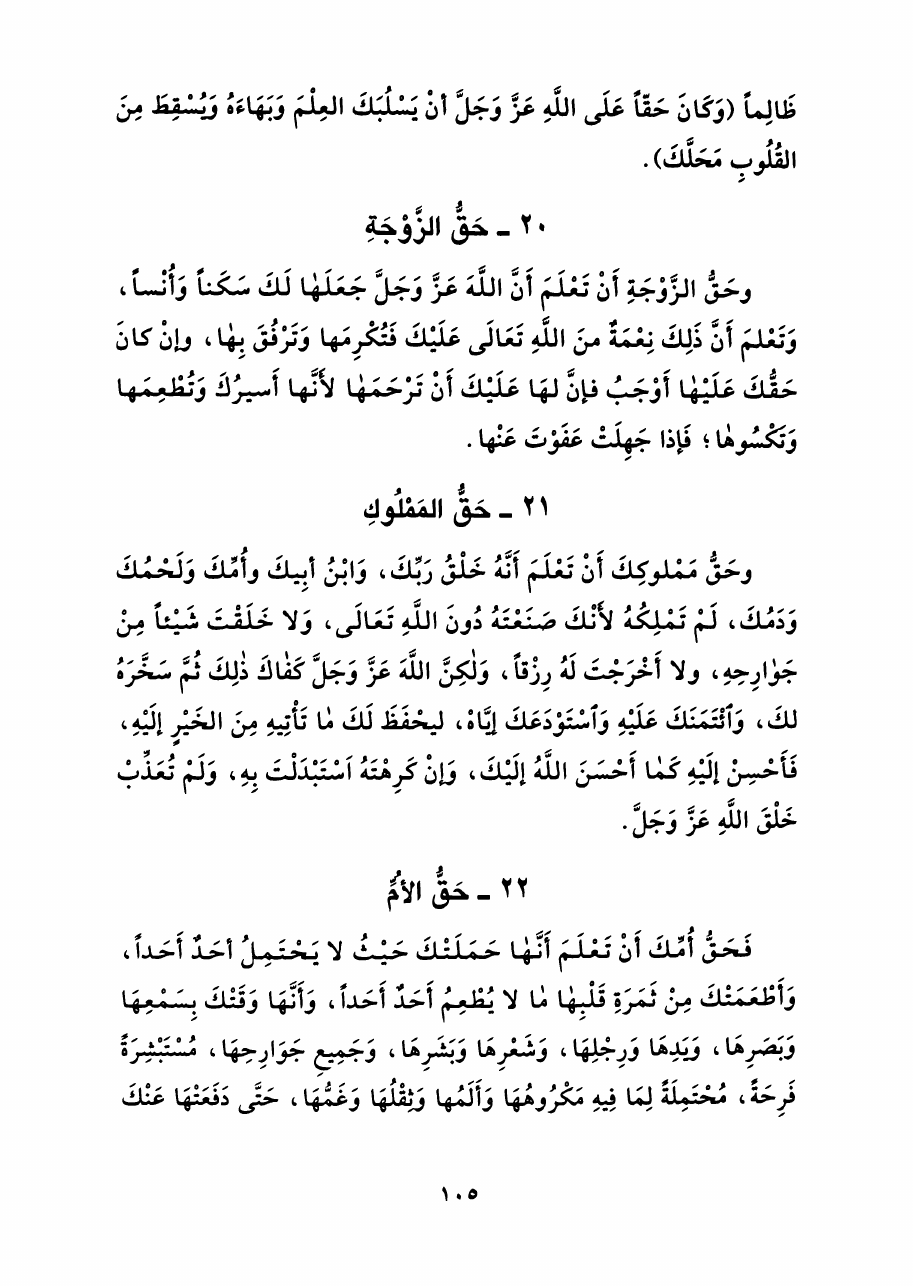 ظَالِماً (وَكَانَ حَقّاً عَلَى اللَّهِ عَزَّ وَجَلَّ أنْ يَسْلُبَكَ العِلْمَ وَبَهَاءَهُ وَيُسْقِطَ مِنَ
القُلُوبِ مَحَلَّكَ).
٢٠ ـ حَقُّ الزَّوْجَةِ
وحَقُّ الزَّوْجَةِ أَنْ تَعْلَمَ أَنَّ اللَّهَ عَزَّ وَجَلَّ جَعَلَهٰا لَكَ سَكَناً وَأُنْساً،
وَتَعْلمَ أَنَّ ذَلِكَ نِعْمَةٌ منَ اللَّهِ تَعَالَى عَلَيْكَ فَتُكْرِمَها وَتَرْفُقَ بِهٰا، وإنْ كانَ
حَقُّكَ عَلَيْهٰا أَوْجَبُ فإنَّ لهَا عَلَيْكَ أَنْ تَرْحَمَهٰا لأَنَّها أَسيرُكَ وَتُطْعِمَها
وَتَكْسُوهٰا؛ فَإذا جَهِلَتْ عَفَوْتَ عَنْها.
٢١ ـ حَقُّ المَمْلُوكِ
وحَقُّ مَمْلوكِكَ أَنْ تَعْلَمَ أَنَّهُ خَلْقُ رَبِّكَ، وَابْنُ أبِيكَ وأُمِّكَ وَلَحْمُكَ
وَدَمُكَ، لَمْ تَمْلِكْهُ لأَنْكَ صَنَعْتَهُ دُونَ اللَّهِ تَعَالَى، وَلا خَلَقْتَ شَيْئاً مِنْ
جَوٰارِحِهِ، ولا أَخْرَجْتَ لَهُ رِزْقاً، وَلٰكِنَّ اللَّهَ عَزَّ وَجَلَّ كَفٰاكَ ذٰلِكَ ثُمَّ سَخَّرَهُ
لكَ، وَٱئْتَمَنَكَ عَلَيْهِ وَٱسْتَوْدَعَكَ إيَّاهُ، ليحْفَظَ لَكَ مٰا تَأْتِيهِ مِنَ الخَيْرِ إلَيْهِ،
فَأَحْسِنْ إلَيْهِ كَمٰا أَحْسَنَ اللَّهُ إلَيْكَ، وَإنْ كَرِهْتَهُ اَسْتَبْدَلْتَ بِهِ، وَلَمْ تُعَذِّبْ
خَلْقَ اللَّهِ عَزَّ وَجَلَّ.
٢٢ ـ حَقُّ الأُمِّ
فَحَقُّ أُمِّكَ أَنْ تَعْلَمَ أَنَّهٰا حَمَلَتْكَ حَيْثُ لا يَحْتَمِلُ أحَدٌ أَحَداً،
وَأَطْعَمَتْكَ مِنْ ثَمَرَةِ قَلْبِهٰا مٰا لا يُطْعِمُ أَحَدٌ أَحَداً، وَأَنَّهَا وَقَتْكَ بِسَمْعِهَا
وَبَصَرِهَا، وَيَدِهَا وَرِجْلِهَا، وَشَعْرِهَا وَبَشَرِهَا، وَجَمِيعِ جَوَارِحِهَا، مُسْتَبْشِرَةً
فَرِحَةً، مُحْتَمِلَةً لِمَا فِيهِ مَكْرُوهُهَا وَأَلَمُها وَثِقْلُهَا وَغَمُّهَا، حَتَّى دَفَعَتْهَا عَنْكَ
١٠٥